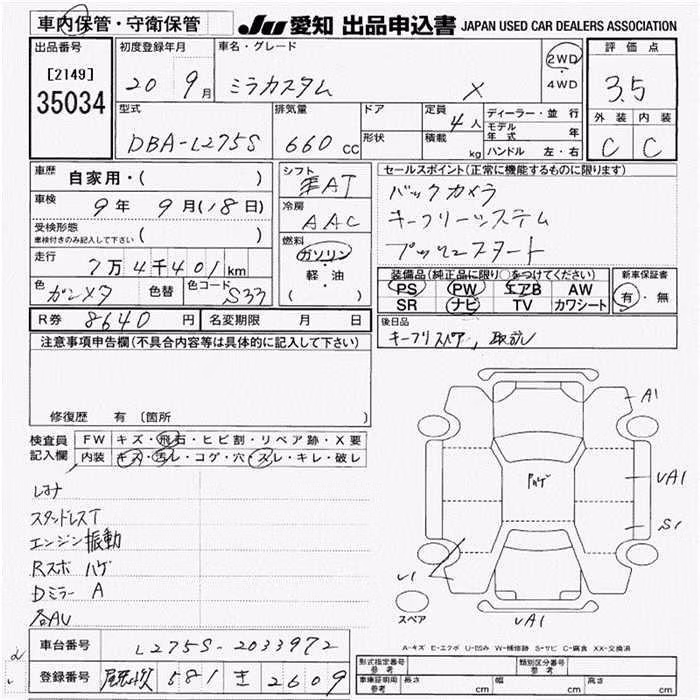 車内保管・守衛保管
JU 愛知 出品申込書 JAPAN USED CAR DEALERS ASSOCIATION
出品番号 初度登録年月 車名・グレード 2WD・4WD 評価点
[2149]
35034 20 9月 ミラカスタム X 3.5
型式 排気量 ドア 定員 ディーラー・並行 外装 内装
DBA-L275S 660cc 4人 モデル年式 年 C C
形状 積載 kg ハンドル 左・右
車歴 自家用・( ) シフト AT セールスポイント(正常に機能するものに限ります)
車検 9年 9月(18日) 冷房 AAC バックカメラ
受検形態 車検付きのみ記入して下さい ( ) キーフリーシステム
燃料 ガソリン・軽・油 ( ) プッシュスタート
走行 7万4千401km 装備品(純正品に限り○をつけてください) 新車保証書
色 ガンメタ 色替 色コード S33 PS PW エアB AW 有・無
SR ナビ TV カワシート
R券 8640円 名変期限 月 日 後日品
注意事項申告欄(不具合内容等は具体的に記入して下さい) キーフリスペア, 取説
修復歴 有 〔箇所
検査員記入欄 FW キズ・飛石・ヒビ割・リペア跡・X要
内装 キズ・汚レ・コゲ・穴・スレ・キレ・破レ
スタッドレスT
エンジン振動
Rスポ ハゲ
Dミラー A
各AU
A1
ハゲ
UA1
S1
U1
スペア
UA1
A-キズ E-エクボ U-凹み W-補修跡 S-サビ C-腐食 XX-交換済
車台番号 L275S-2033972
登録番号 581 き 2609
型式指定番号 参考 類別区分番号 参考
車庫証明用 参考 長さ cm 幅 cm 高さ cm